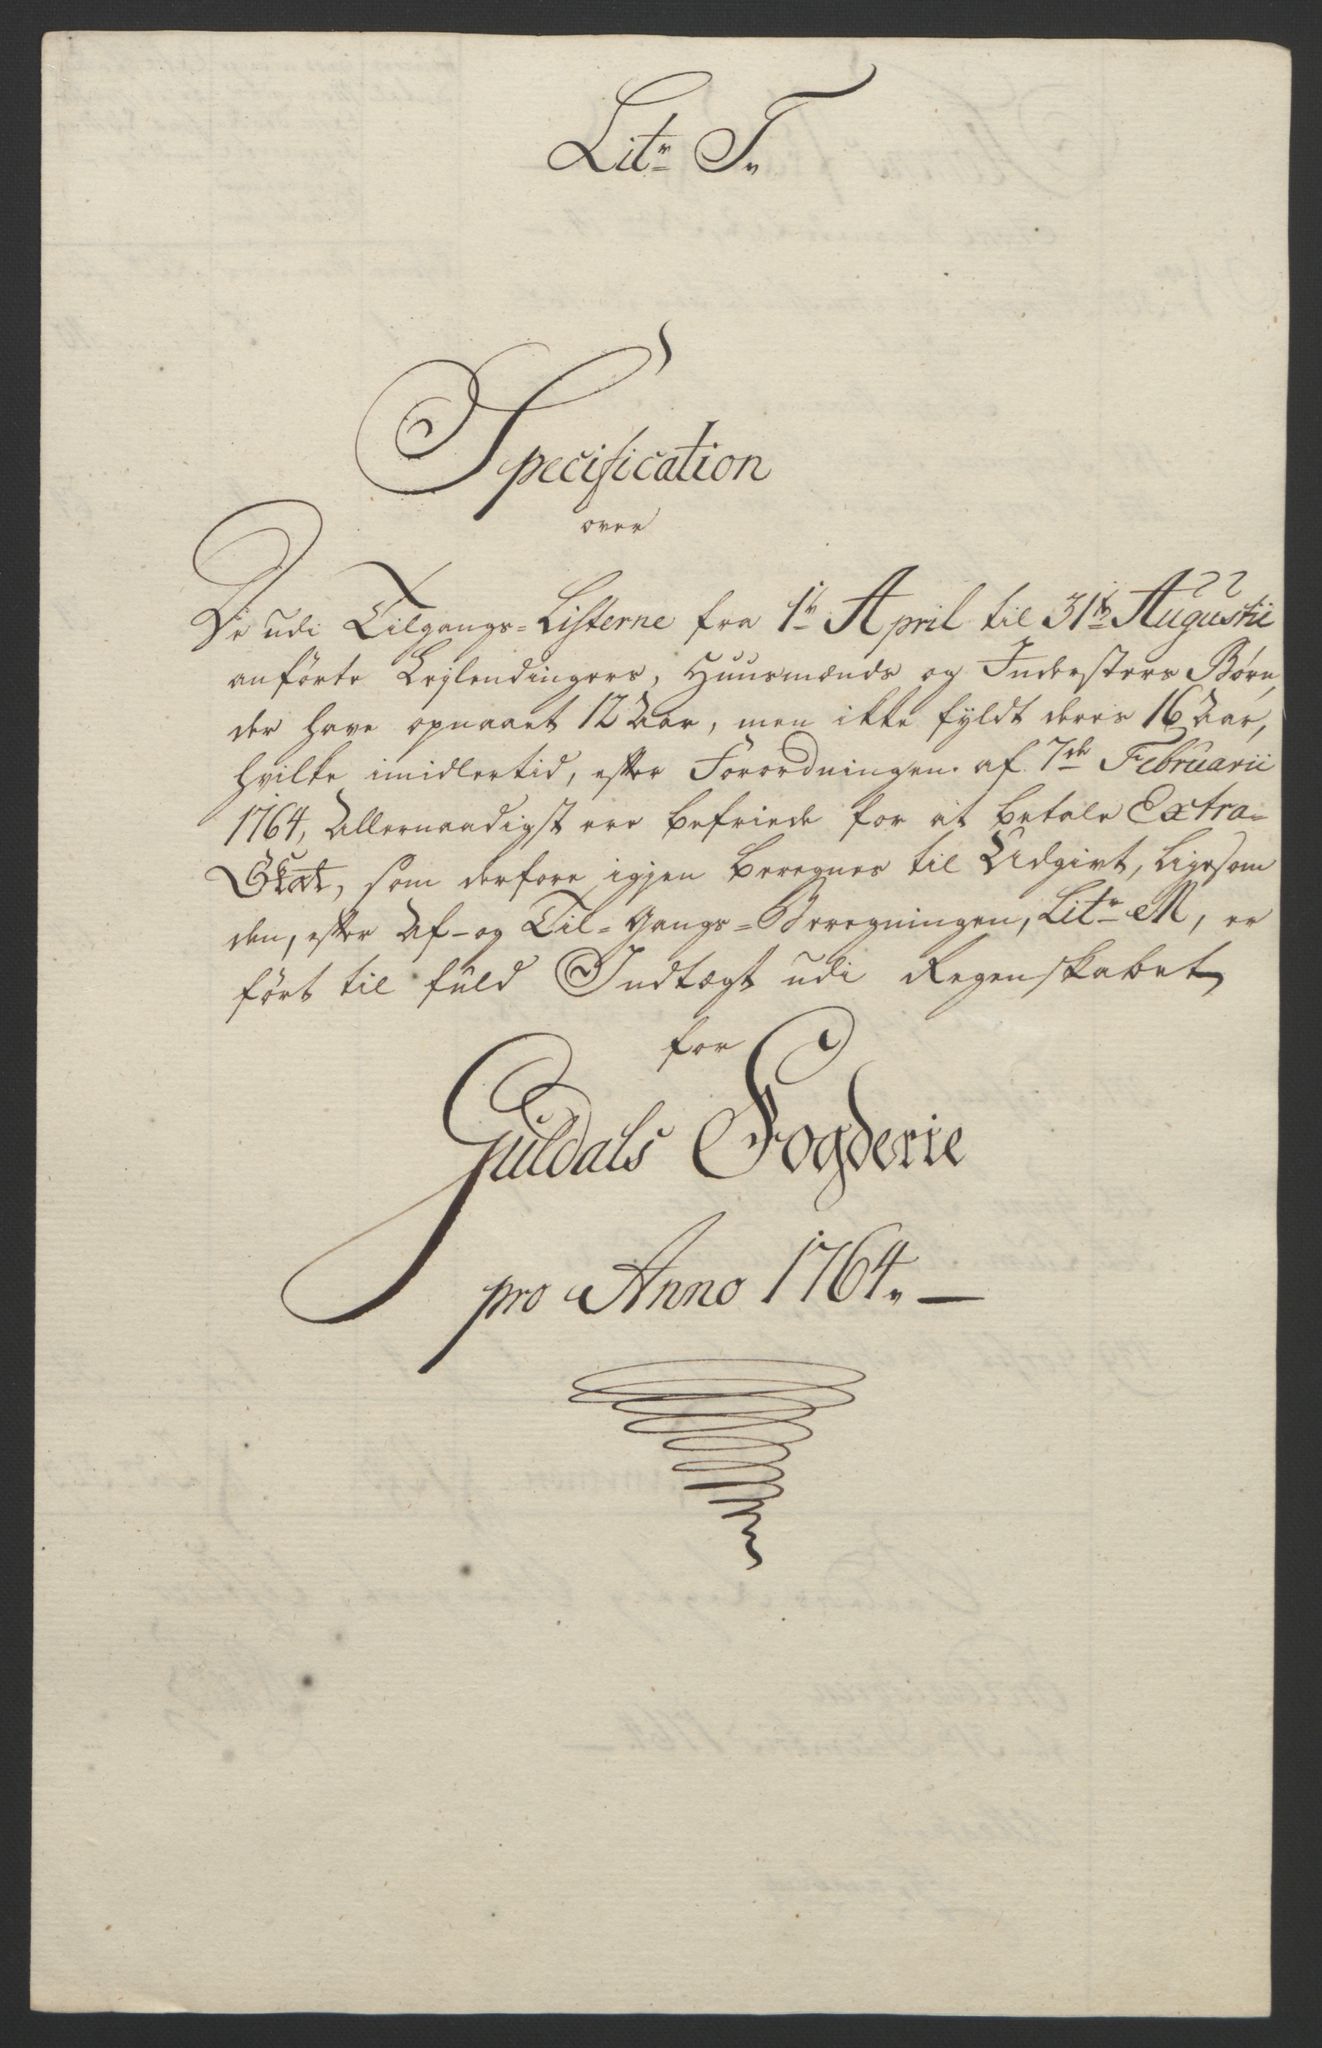 Litr T.
Specification
over
De udi Tilgangs-Listerne fra 1te April til 31te Augustii
anførte Lejlendingers, Huusmænds og Indersters Børn,
der have opnaaet 12 Aar, men ikke fyldt deres 16 Aar,
hvilke imidlertid, efter Forordningen af 7de Februarii
1764, Allernaadigst ere befriede for at betale Extra-
Skat, som derfore igjen beregnes til Udgivt, ligesom
den, efter Af- og Til-Gangs-Beregningen, Litr M, er
ført til fuld Indtægt udi Regenskabet
for
Guldals Fogderie
pro Anno 1764. —